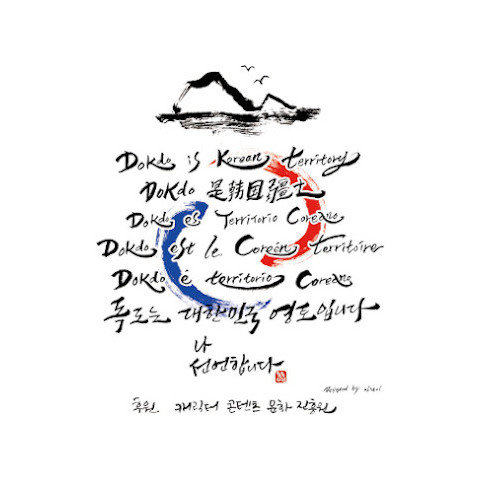 Dokdo is Korean territory
Dokdo 是韩国疆土
Dokdo es Territorio Coreano
Dokdo est le Coréen territoire
Dokdo è territorio Coreano
독도는 대한민국 영토입니다
나
선언합니다
Designed by
후원 캐릭터 콘텐츠 문화 진흥원